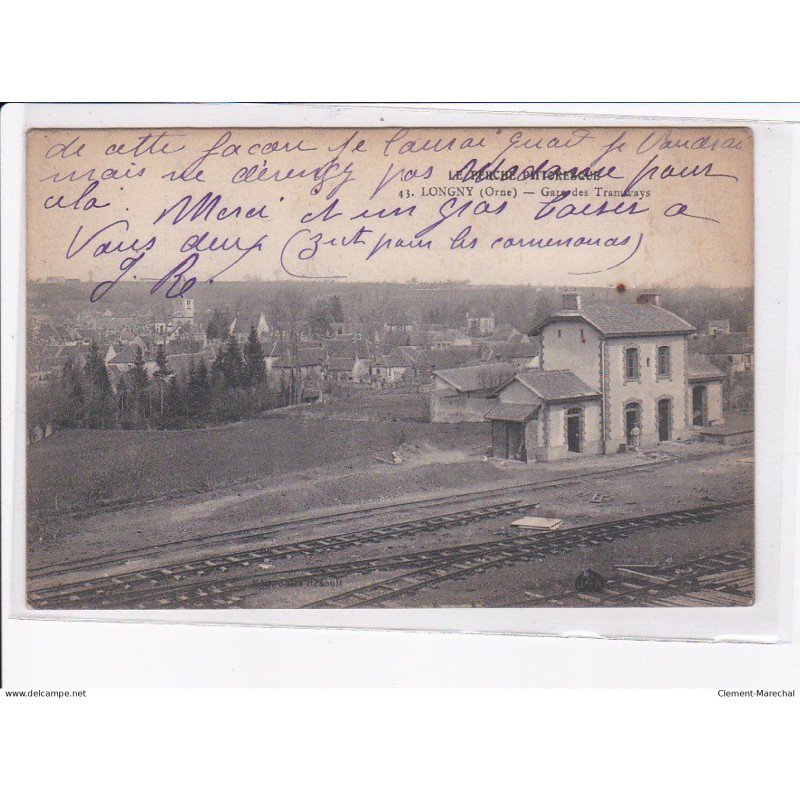 de cette façon je l'aurai quand je voudrai
mais ne dérengy pas Madame pour
LE PERCHE PITTORESQUE
cela.
43. LONGNY (Orne) — Gare des Tramways
Merci et un gros baiser a
Vous deux
(pour les commencer)
J. Re
Edit. Renault
www.delcampe.net
Clement-Marechal